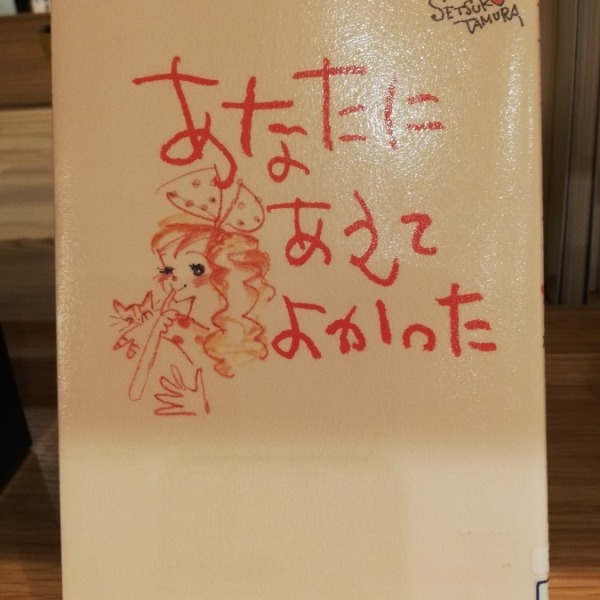 SETSUKO
TAMURA
あなたに
あえて
よかった